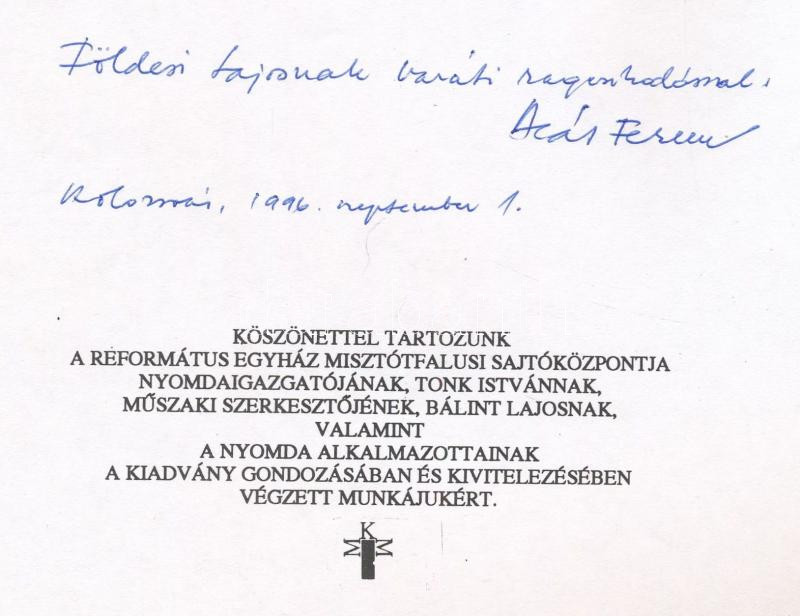 Földesi Lajosnak baráti ragaszkodással.
Acát Ferenc
Kolozsvár, 1996. szeptember 1.
KÖSZÖNETTEL TARTOZUNK
A REFORMÁTUS EGYHÁZ MISZTÓTFALUSI SAJTÓKÖZPONTJA
NYOMDAIGAZGATÓJÁNAK, TONK ISTVÁNNAK,
MŰSZAKI SZERKESZTŐJÉNEK, BÁLINT LAJOSNAK,
VALAMINT
A NYOMDA ALKALMAZOTTAINAK
A KIADVÁNY GONDOZÁSÁBAN ÉS KIVITELEZÉSÉBEN
VÉGZETT MUNKÁJUKÉRT.
K
M M